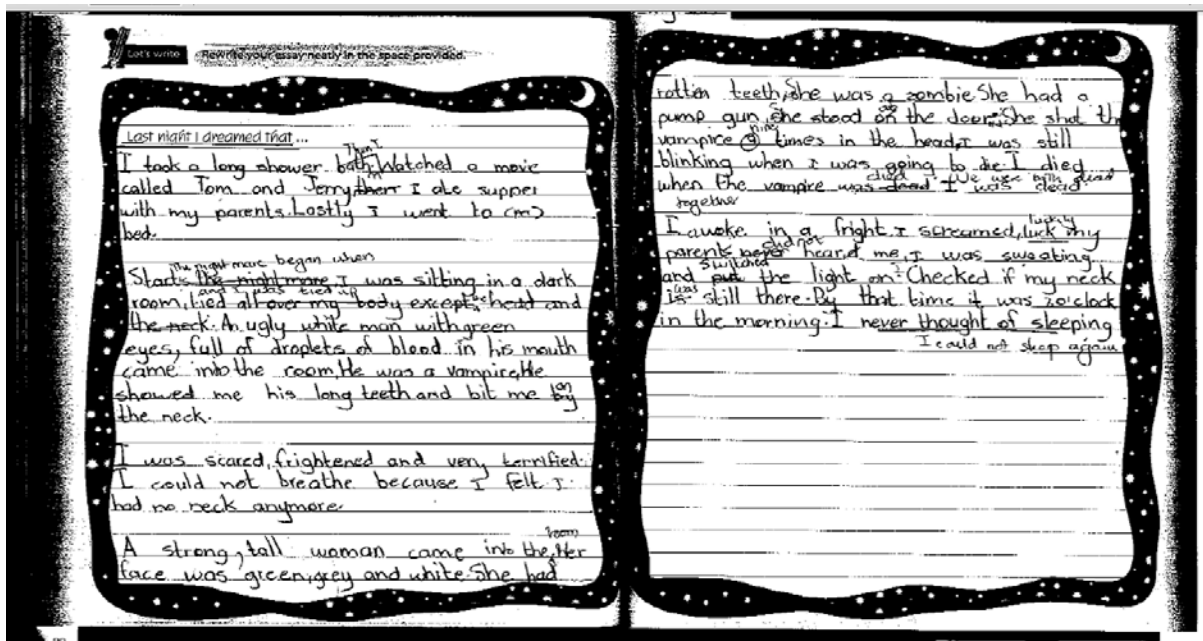 Let's write
Rewrite your essay neatly in the space provided.
Last night I dreamed that ...
Then I
I took a long shower bath. Watched a movie
called Tom and Jerry, then I ate supper
with my parents. Lastly I went to (m)
bed.
The nightmare began when
Starts the nightmare, I was sitting in a dark
and was tied up
room, tied all over my body except head and
the neck. An ugly white man with green
eyes, full of droplets of blood in his mouth
came into the room, He was a vampire, He
on
showed me his long teeth and bit me by
the neck.
I was scared, frightened and very terrified.
I could not breathe because I felt I
had no neck anymore.
room
A strong, tall woman came into the, Her
face was green, grey and white. She had
rotten teeth, She was a zombie. She had a
pump gun, She stood on the door, She shot th
nine
vampire 9 times in the head, I was still
blinking when I was going to die. I died
died We were both dead
when the vampire was dead I was dead.
together
I awoke in a fright. I screamed, luck my
luckily
did not
parents never heard me, I was sweating
switched
and put the light on. I Checked if my neck
was
is still there. By that time it was 2o'clock
in the morning. I never thought of sleeping
I could not sleep again